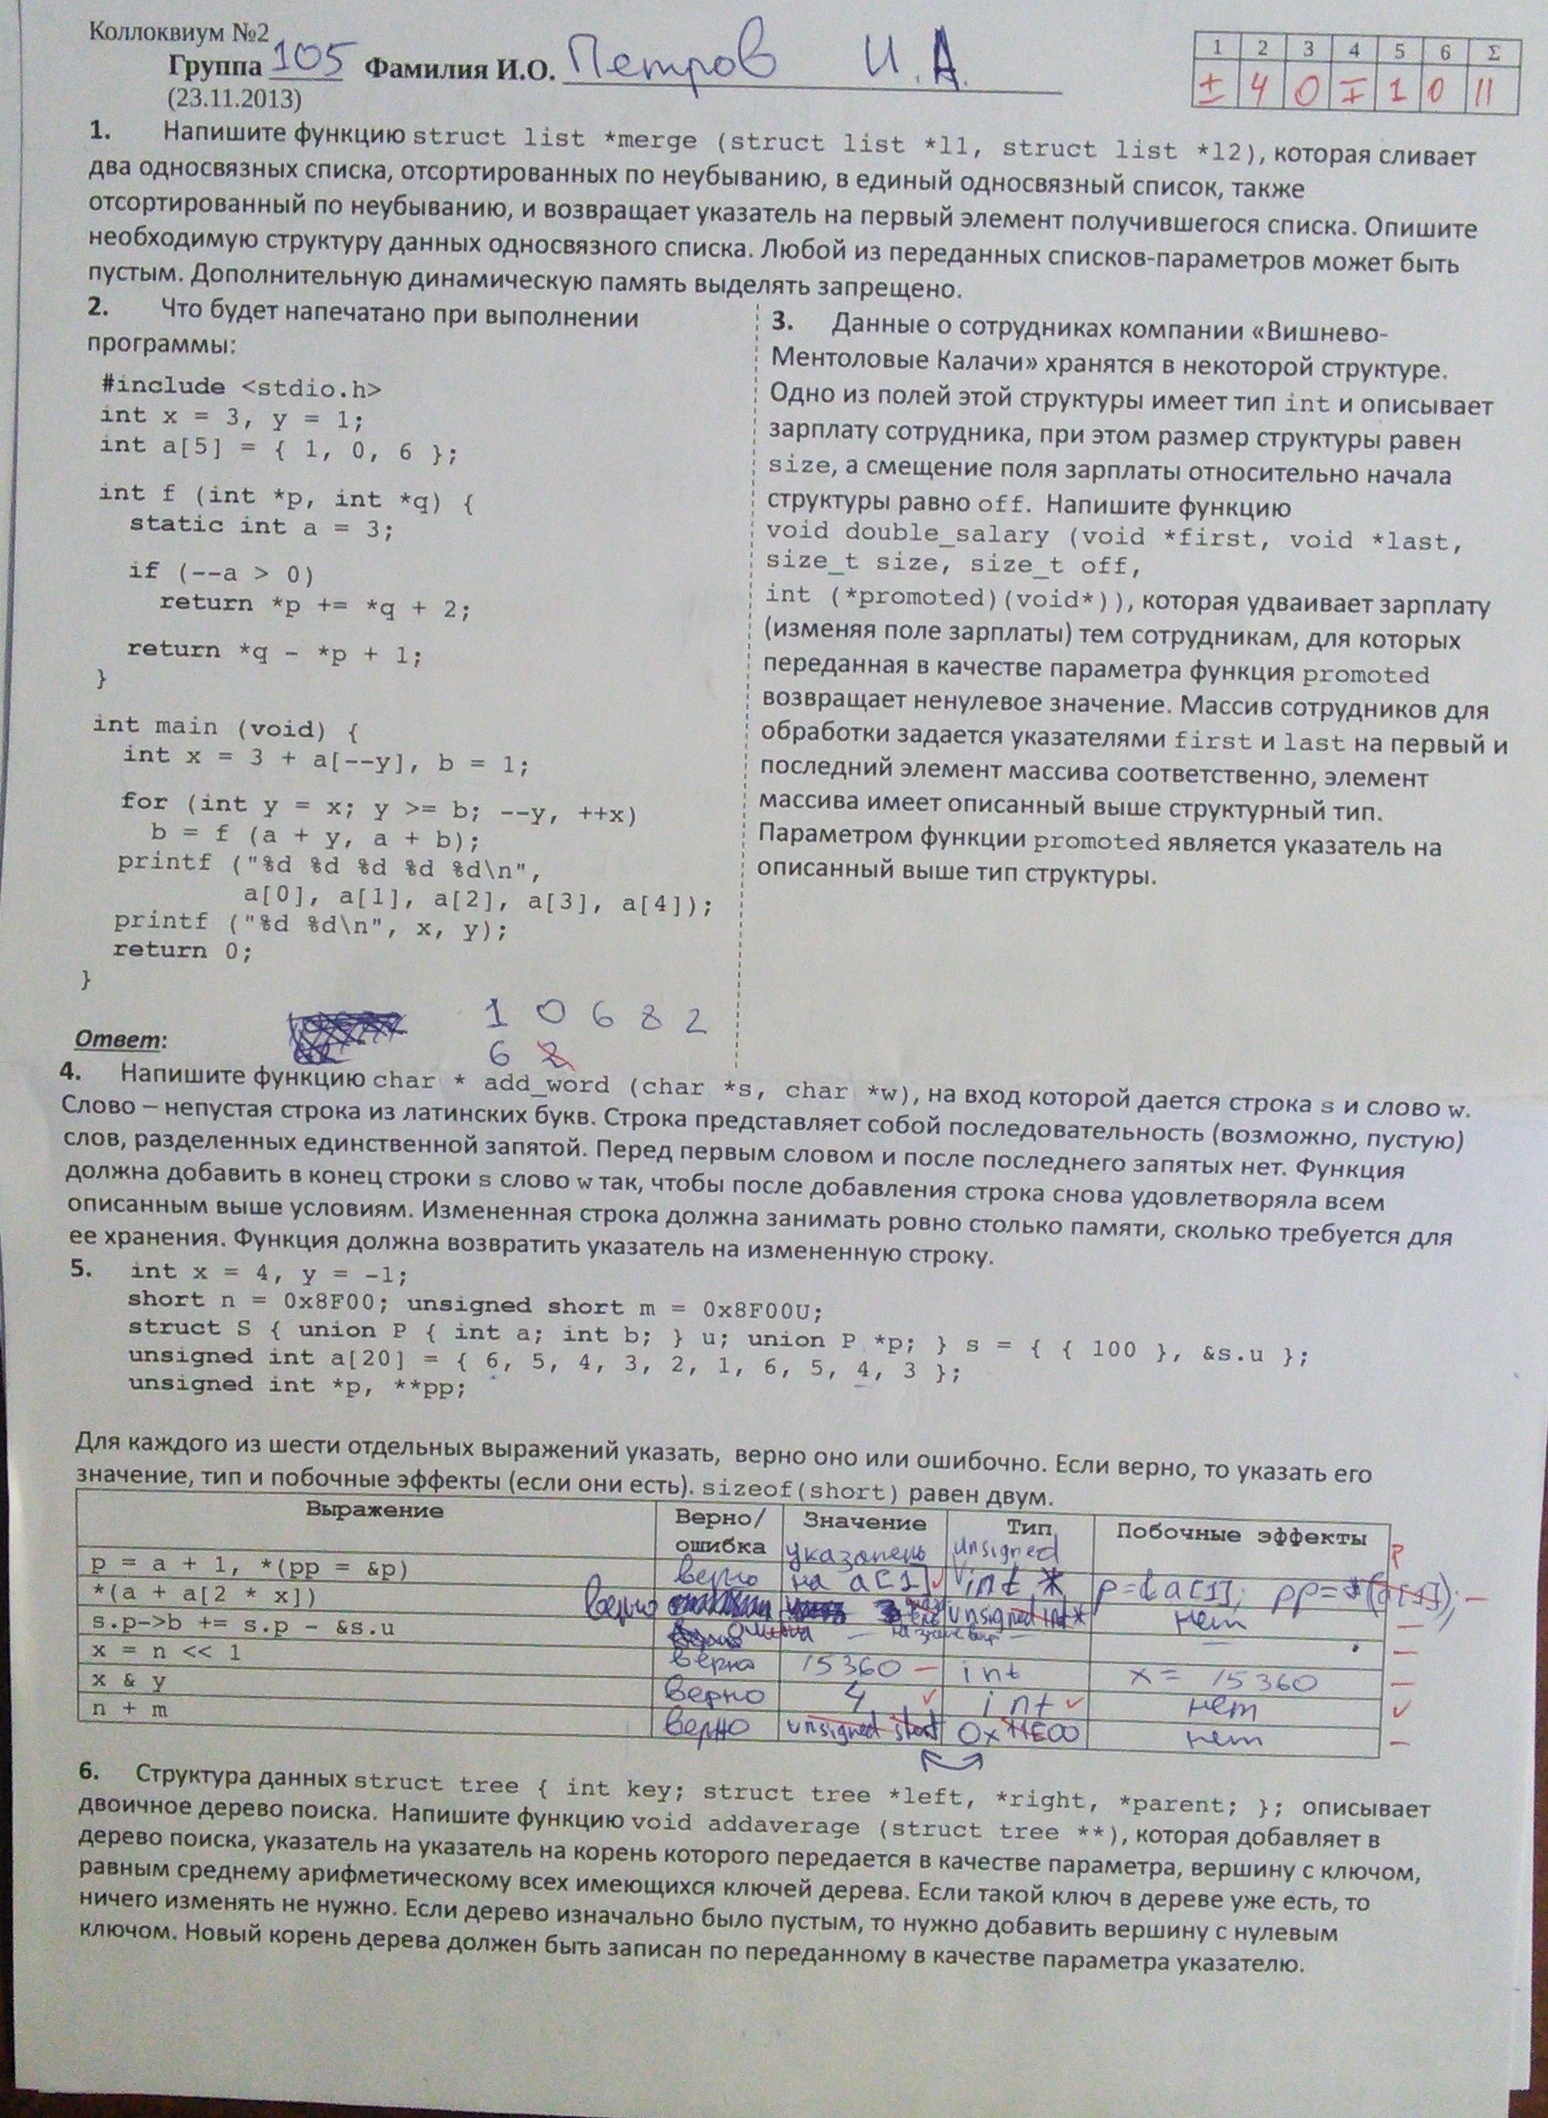 Коллоквиум №2
Группа 105 Фамилия И.О. Петров И.А.
(23.11.2013)
1 2 3 4 5 6 Σ
± 4 0 ∓ 1 0 11
1. Напишите функцию struct list *merge (struct list *l1, struct list *l2), которая сливает
два односвязных списка, отсортированных по неубыванию, в единый односвязный список, также
отсортированный по неубыванию, и возвращает указатель на первый элемент получившегося списка. Опишите
необходимую структуру данных односвязного списка. Любой из переданных списков-параметров может быть
пустым. Дополнительную динамическую память выделять запрещено.
2. Что будет напечатано при выполнении
программы:
#include <stdio.h>
int x = 3, y = 1;
int a[5] = { 1, 0, 6 };
int f (int *p, int *q) {
static int a = 3;
if (--a > 0)
return *p += *q + 2;
return *q - *p + 1;
}
int main (void) {
int x = 3 + a[--y], b = 1;
for (int y = x; y >= b; --y, ++x)
b = f (a + y, a + b);
printf ("%d %d %d %d %d\n",
a[0], a[1], a[2], a[3], a[4]);
printf ("%d %d\n", x, y);
return 0;
}
1 0 6 8 2
Ответ:
6 2
3. Данные о сотрудниках компании «Вишнево-
Ментоловые Калачи» хранятся в некоторой структуре.
Одно из полей этой структуры имеет тип int и описывает
зарплату сотрудника, при этом размер структуры равен
size, а смещение поля зарплаты относительно начала
структуры равно off. Напишите функцию
void double_salary (void *first, void *last,
size_t size, size_t off,
int (*promoted)(void*)), которая удваивает зарплату
(изменяя поле зарплаты) тем сотрудникам, для которых
переданная в качестве параметра функция promoted
возвращает ненулевое значение. Массив сотрудников для
обработки задается указателями first и last на первый и
последний элемент массива соответственно, элемент
массива имеет описанный выше структурный тип.
Параметром функции promoted является указатель на
описанный выше тип структуры.
4. Напишите функцию char * add_word (char *s, char *w), на вход которой дается строка s и слово w.
Слово – непустая строка из латинских букв. Строка представляет собой последовательность (возможно, пустую)
слов, разделенных единственной запятой. Перед первым словом и после последнего запятых нет. Функция
должна добавить в конец строки s слово w так, чтобы после добавления строка снова удовлетворяла всем
описанным выше условиям. Измененная строка должна занимать ровно столько памяти, сколько требуется для
ее хранения. Функция должна возвратить указатель на измененную строку.
5. int x = 4, y = -1;
short n = 0x8F00; unsigned short m = 0x8F00U;
struct S { union P { int a; int b; } u; union P *p; } s = { { 100 }, &s.u };
unsigned int a[20] = { 6, 5, 4, 3, 2, 1, 6, 5, 4, 3 };
unsigned int *p, **pp;
Для каждого из шести отдельных выражений указать, верно оно или ошибочно. Если верно, то указать его
значение, тип и побочные эффекты (если они есть). sizeof(short) равен двум.
Выражение Верно/ошибка Значение Тип Побочные эффекты
p = a + 1, *(pp = &p) верно указатель на a[1] unsigned int * p=&a[1];
*(a + a[2 * x]) верно unsigned int* нет
s.p->b += s.p - &s.u
x = n << 1 верно 15360 int x = 15360
x & y верно 4 int нет
n + m верно unsigned short нет
6. Структура данных struct tree { int key; struct tree *left, *right, *parent; }; описывает
двоичное дерево поиска. Напишите функцию void addaverage (struct tree **), которая добавляет в
дерево поиска, указатель на указатель на корень которого передается в качестве параметра, вершину с ключом,
равным среднему арифметическому всех имеющихся ключей дерева. Если такой ключ в дереве уже есть, то
ничего изменять не нужно. Если дерево изначально было пустым, то нужно добавить вершину с нулевым
ключом. Новый корень дерева должен быть записан по переданному в качестве параметра указателю.